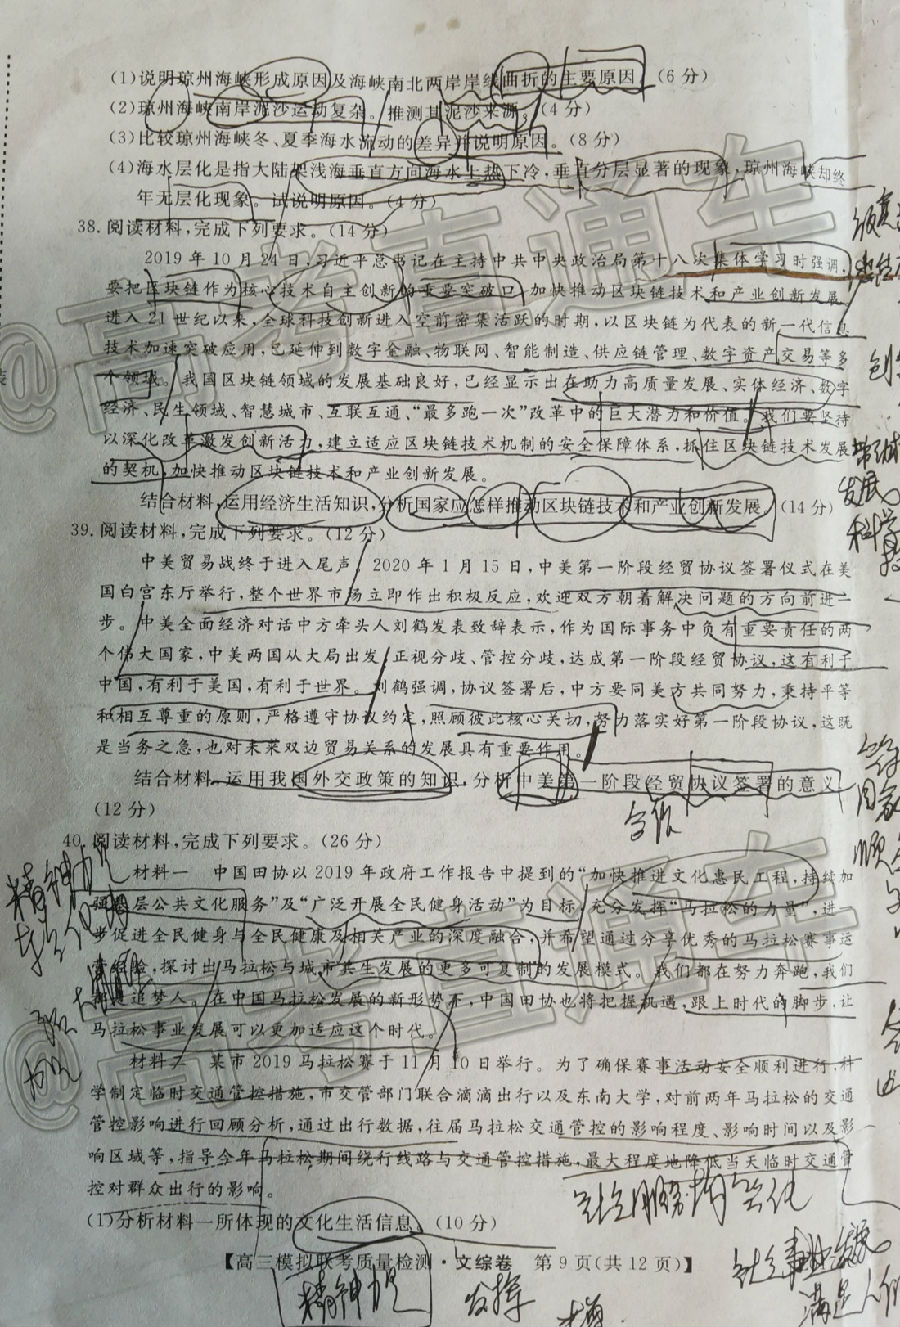 (1)说明琼州海峡形成原因及海峡南北两岸岸线曲折的主要原因。(6分)
(2)琼州海峡南岸泥沙运动复杂。推测其泥沙来源。(4分)
(3)比较琼州海峡冬、夏季海水流动的差异并说明原因。(8分)
(4)海水层化是指大陆架浅海垂直方向海水上热下冷,垂直分层显著的现象,琼州海峡却终
年无层化现象。试说明原因。(4分)
38.阅读材料,完成下列要求。(14分)
2019年10月24日,习近平总书记在主持中共中央政治局第十八次集体学习时强调,
要把区块链作为核心技术自主创新的重要突破口,加快推动区块链技术和产业创新发展。
进入21世纪以来,全球科技创新进入空前密集活跃的时期,以区块链为代表的新一代信息
技术加速突破应用,已延伸到数字金融、物联网、智能制造、供应链管理、数字资产交易等多
个领域。我国区块链领域的发展基础良好,已经显示出在助力高质量发展、实体经济、数字
经济、民生领域、智慧城市、互联互通、“最多跑一次”改革中的巨大潜力和价值。我们要坚持
以深化改革激发创新活力,建立适应区块链技术机制的安全保障体系,抓住区块链技术发展
的契机,加快推动区块链技术和产业创新发展。
结合材料,运用经济生活知识,分析国家应怎样推动区块链技术和产业创新发展。(14分)
39.阅读材料,完成下列要求。(12分)
中美贸易战终于进入尾声,2020年1月15日,中美第一阶段经贸协议签署仪式在美
国白宫东厅举行,整个世界市场立即作出积极反应,欢迎双方朝着解决问题的方向前进一
步。中美全面经济对话中方牵头人刘鹤发表致辞表示,作为国际事务中负有重要责任的两
个伟大国家,中美两国从大局出发,正视分歧、管控分歧,达成第一阶段经贸协议,这有利于
中国,有利于美国,有利于世界。刘鹤强调,协议签署后,中方要同美方共同努力,秉持平等
和相互尊重的原则,严格遵守协议约定,照顾彼此核心关切,努力落实好第一阶段协议,这既
是当务之急,也对未来双边贸易关系的发展具有重要作用。
结合材料,运用我国外交政策的知识,分析中美第一阶段经贸协议签署的意义。
(12分)
40.阅读材料,完成下列要求。(26分)
材料一 中国田协以2019年政府工作报告中提到的“加快推进文化惠民工程,持续加
强基层公共文化服务”及“广泛开展全民健身活动”为目标,充分发挥“马拉松的力量”,进一
步促进全民健身与全民健康及相关产业的深度融合,并希望通过分享优秀的马拉松赛事运
营经验,探讨出马拉松与城市共生发展的更多可复制的发展模式。我们都在努力奔跑,我们
都是追梦人。在中国马拉松发展的新形势下,中国田协也将把握机遇,跟上时代的脚步,让
马拉松事业发展可以更加适应这个时代。
材料二 某市2019马拉松赛于11月10日举行。为了确保赛事活动安全顺利进行,科
学制定临时交通管控措施,市交管部门联合滴滴出行以及东南大学,对前两年马拉松的交通
管控影响进行回顾分析,通过出行数据,往届马拉松交通管控的影响程度、影响时间以及影
响区域等,指导今年马拉松期间绕行线路与交通管控措施,最大程度地降低当天临时交通管
控对群众出行的影响。
(1)分析材料一所体现的文化生活信息。(10分)
【高三模拟联考质量检测·文综卷 第9页(共12页)】
精神力
发挥
@高考直通车
@高考直通车